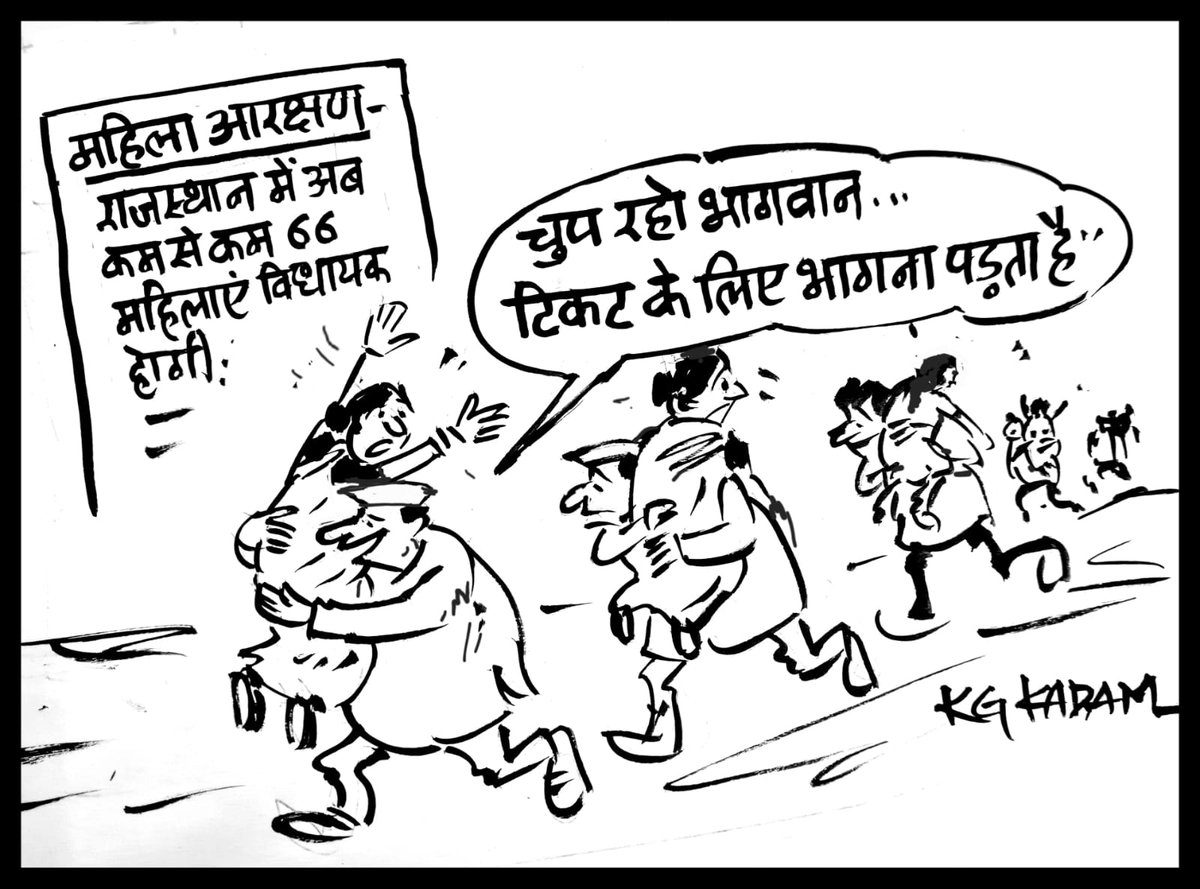 महिला आरक्षण-
राजस्थान में अब
कम से कम 66
महिलाएं विधायक
होगी.
चुप रहो भागवान...
टिकट के लिए भागना पड़ता है..
KG KADAM